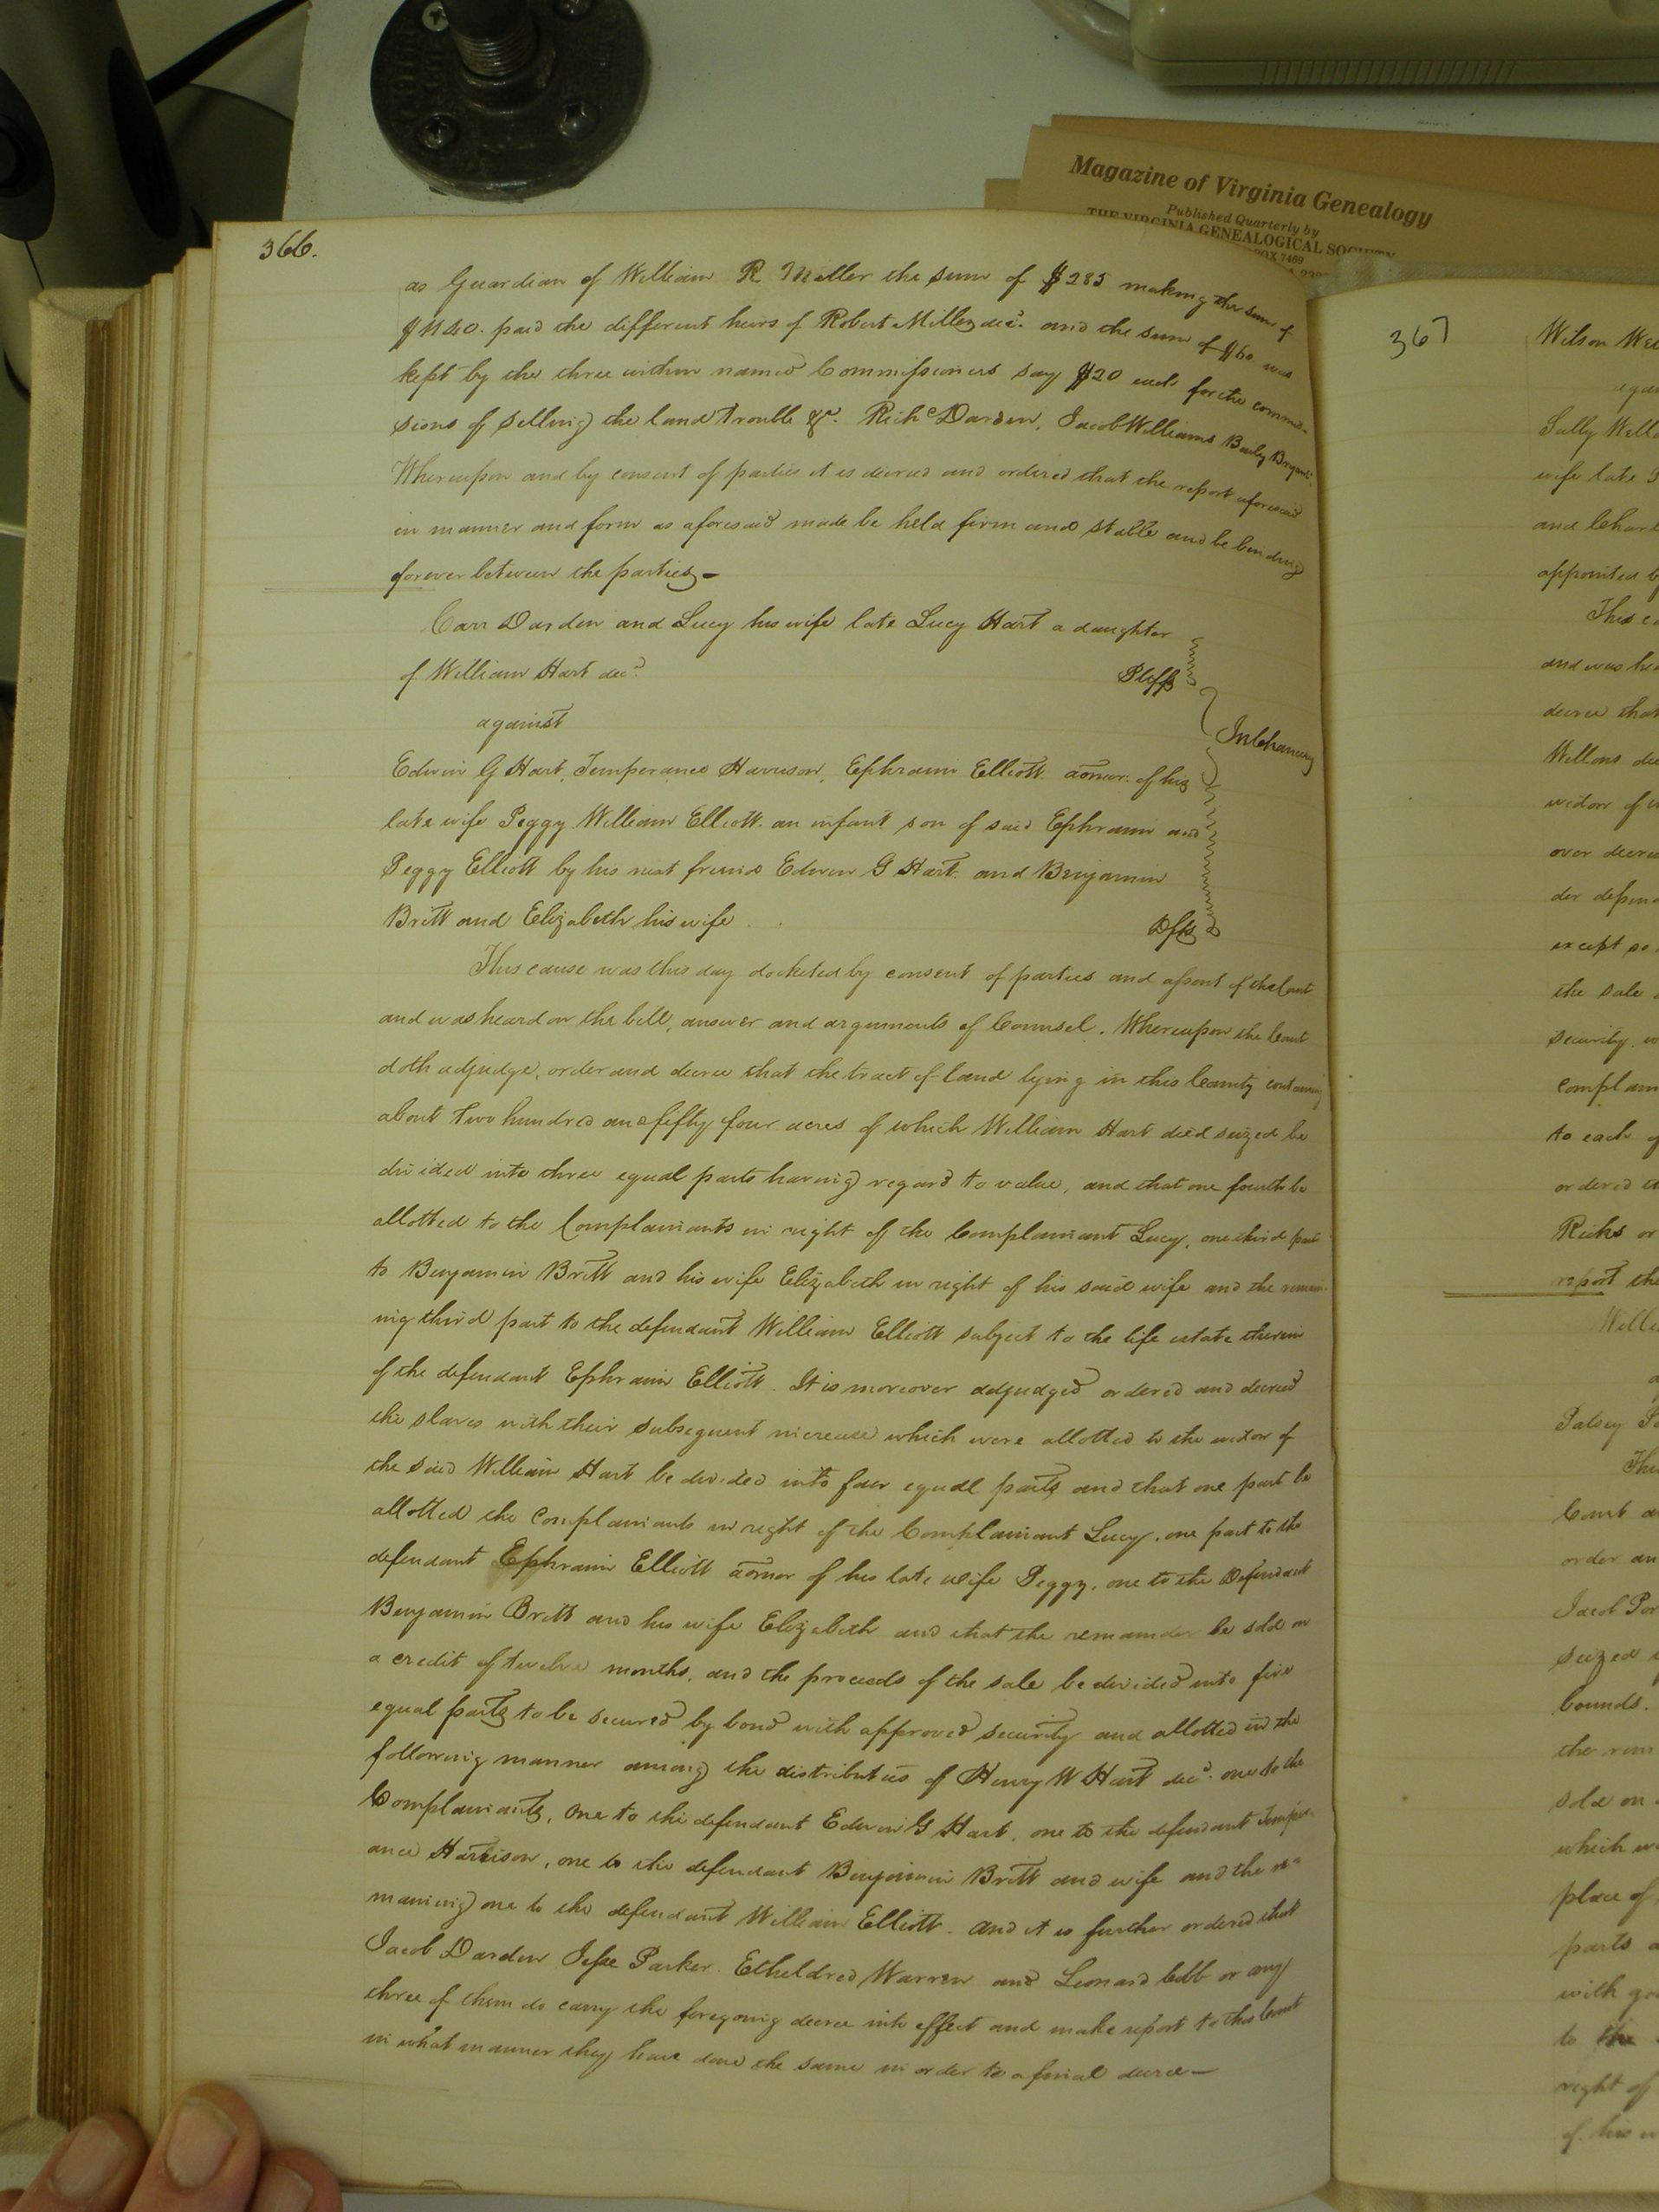 Magazine of Virginia Genealogy
Published Quarterly by
THE VIRGINIA GENEALOGICAL SOCIETY
BOX 7469
366.
as Guardian of William R Miller the sum of $285 making the sum of
$1140. paid the different heirs of Robert Miller decd. and the sum of $60. was
kept by the three within named Commissioners say $20 each for the commis-
sions of selling the land trouble &c. Richd Darden, Jacob Williams
Whereupon and by consent of parties it is decreed and ordered that the report aforesaid
in manner and form as aforesaid made be held firm and stable and be binding
forever between the parties—
Carr Darden and Lucy his wife late Lucy Hart a daughter
of William Hart decd. Pltffs
against
In Chancery
Edwin G Hart, Temperance Harrison, Ephraim Elliott admr. of his
late wife Peggy William Elliott an infant son of said Ephraim and
Peggy Elliott by his next friend Edwin G Hart and Benjamin
Britt and Elizabeth his wife Dfts
This cause was this day docketed by consent of parties and assent of the Court
and was heard on the bill, answer and arguments of Counsel. Whereupon the Court
doth adjudge, order and decree that the tract of land lying in this County containing
about two hundred and fifty four acres of which William Hart died seized be
divided into three equal parts having regard to value, and that one fourth be
allotted to the Complainants in right of the Complainant Lucy, one third part
to Benjamin Britt and his wife Elizabeth in right of his said wife and the remai-
ning third part to the defendant William Elliott subject to the life estate therein
of the defendant Ephraim Elliott. It is moreover adjudged ordered and decreed
the slaves with their subsequent increase which were allotted to the widow of
the said William Hart be divided into four equal parts and that one part be
allotted the Complainants in right of the Complainant Lucy, one part to the
defendant Ephraim Elliott admor of his late wife Peggy, one to the Defendant
Benjamin Britt and his wife Elizabeth and that the remainder be sold on
a credit of twelve months, and the proceeds of the sale be divided into five
equal parts to be secured by bond with approved security and allotted in the
following manner among the distributees of Henry W Hart decd. one to the
Complainants, One to the defendant Edwin G Hart, one to the defendant Temper-
ance Harrison, one to the defendant Benjamin Britt and wife and the re-
maining one to the defendant William Elliott. And it is further ordered that
Jacob Darden Jesse Parker. Etheldred Warren and Leonard Cobb or any
three of them do carry the foregoing decree into effect and make report to this Court
in what manner they have done the same in order to a final decree—
367
Wilson
Sally
wife late
and
appointed
This
and was
decree that
Wellons
widow of
over
der
except so
the sale
security
to each
ordered
Ricks or
report the
Patsey
Court
order an
Jacob
seized
bounds.
the
sold on
which
place of
parts
with
to the
right of
of his